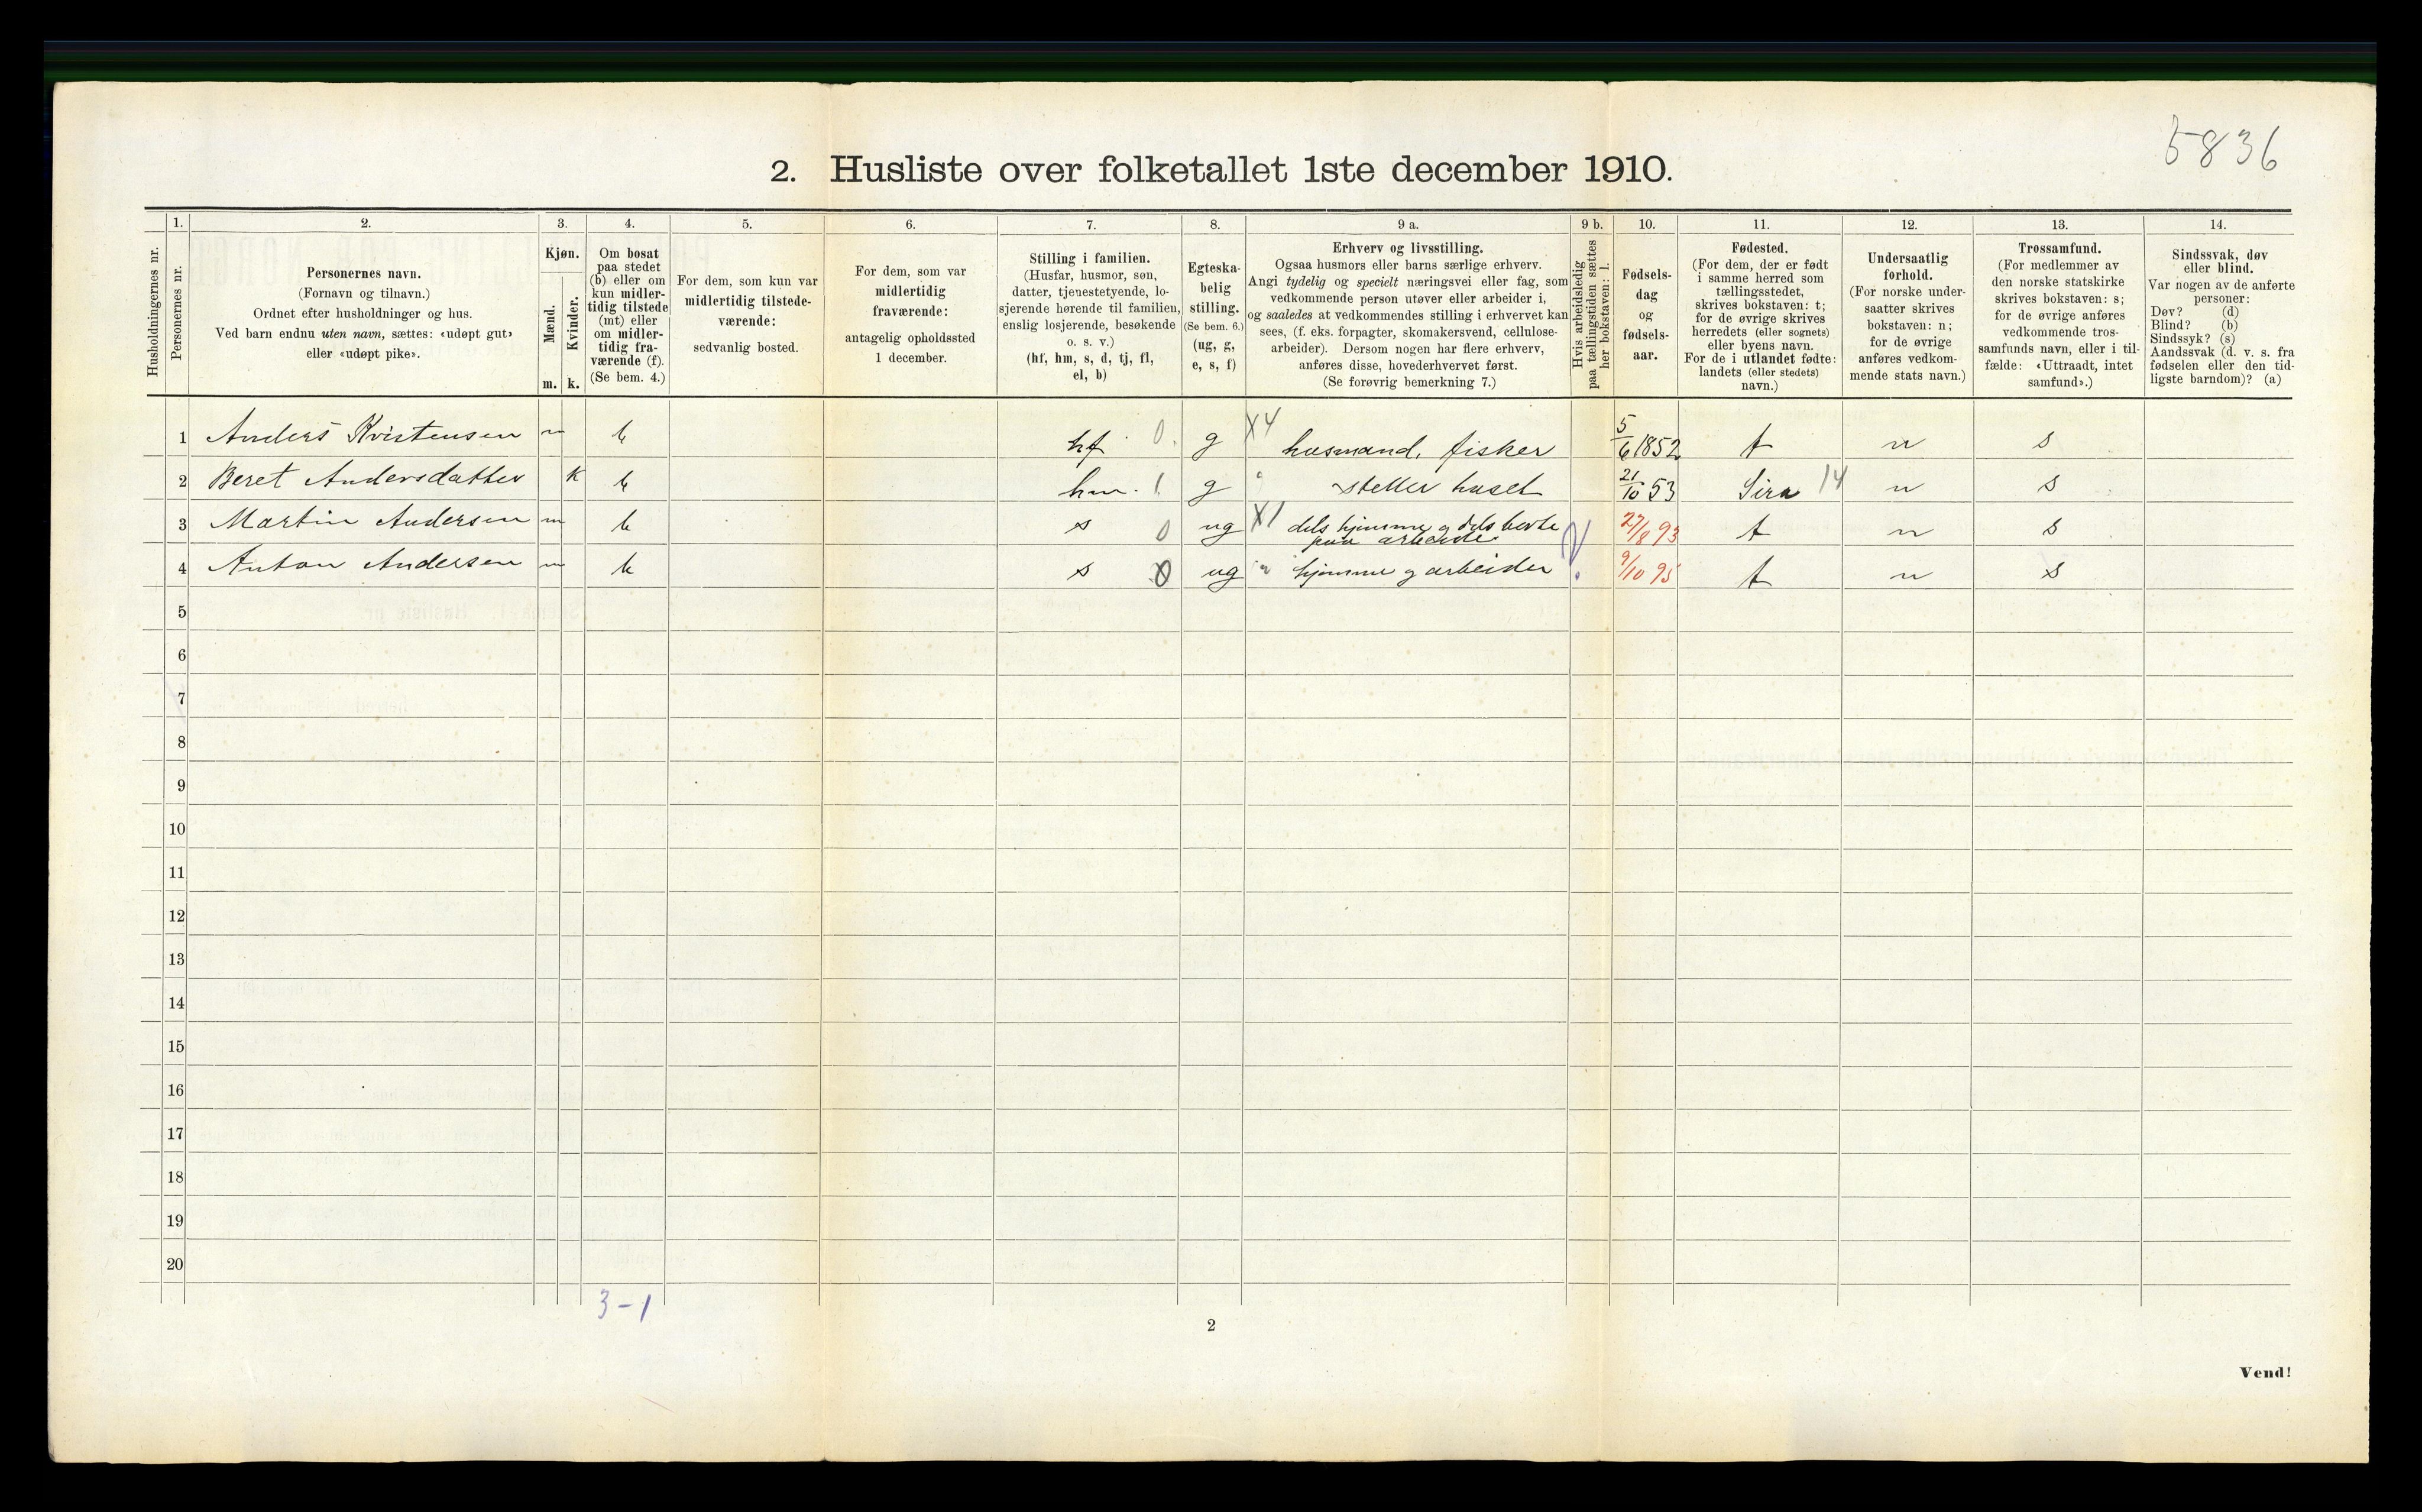 5836
2. Husliste over folketallet 1ste december 1910.
Husholdningernes nr.
1.
Personernes nr.
2.
Personernes navn.
(Fornavn og tilnavn.)
Ordnet efter husholdninger og hus.
Ved barn endnu uten navn, sættes: «udøpt gut»
eller «udøpt pike».
3.
Kjøn.
Mænd.
m.
Kvinder.
k.
4.
Om bosat
paa stedet
(b) eller om
kun midler-
tidig tilstede
(mt) eller
om midler-
tidig fra-
værende (f).
(Se bem. 4.)
5.
For dem, som kun var
midlertidig tilstede-
værende:
sedvanlig bosted.
6.
For dem, som var
midlertidig
fraværende:
antagelig opholdssted
1 december.
7.
Stilling i familien.
(Husfar, husmor, søn,
datter, tjenestetyende, lo-
sjerende hørende til familien,
enslig losjerende, besøkende
o. s. v.)
(hf, hm, s, d, tj, fl,
el, b)
8.
Egteska-
belig
stilling.
(Se bem. 6.)
(ug, g,
e, s, f)
9 a.
Erhverv og livsstilling.
Ogsaa husmors eller barns særlige erhverv.
Angi tydelig og specielt næringsvei eller fag, som
vedkommende person utøver eller arbeider i,
og saaledes at vedkommendes stilling i erhvervet kan
sees, (f. eks. forpagter, skomakersvend, cellulose-
arbeider). Dersom nogen har flere erhverv,
anføres disse, hovederhvervet først.
(Se forøvrig bemerkning 7.)
9 b.
Hvis arbeidsledig
paa tællingstiden sættes
her bokstaven: l.
10.
Fødsels-
dag
og
fødsels-
aar.
11.
Fødested.
(For dem, der er født
i samme herred som
tællingsstedet,
skrives bokstaven: t;
for de øvrige skrives
herredets (eller sognets)
eller byens navn.
For de i utlandet fødte:
landets (eller stedets)
navn.)
12.
Undersaatlig
forhold.
(For norske under-
saatter skrives
bokstaven: n;
for de øvrige
anføres vedkom-
mende stats navn.)
13.
Trossamfund.
(For medlemmer av
den norske statskirke
skrives bokstaven: s;
for de øvrige anføres
vedkommende tros-
samfunds navn, eller i til-
fælde: «Uttraadt, intet
samfund».)
14.
Sindssvak, døv
eller blind.
Var nogen av de anførte
personer:
Døv? (d)
Blind? (b)
Sindssyk? (s)
Aandssvak (d. v. s. fra
fødselen eller den tid-
ligste barndom)? (a)
1 Anders Kristensen m b hf 0. g X4 husmand, fisker 5/6 1852 t n s
2 Beret Andersdatter k b hm. 1 g steller huset 21/10 53 Sira 14 n s
3 Martin Andersen m b s 0 ug X1 dels hjemme og dels borte paa arbeide 27/8 93 t n s
4 Anton Andersen m b s 0 ug hjemme og arbeider 9/10 95 t n s
5
6
7
8
9
10
11
12
13
14
15
16
17
18
19
20
3-1
2
Vend!